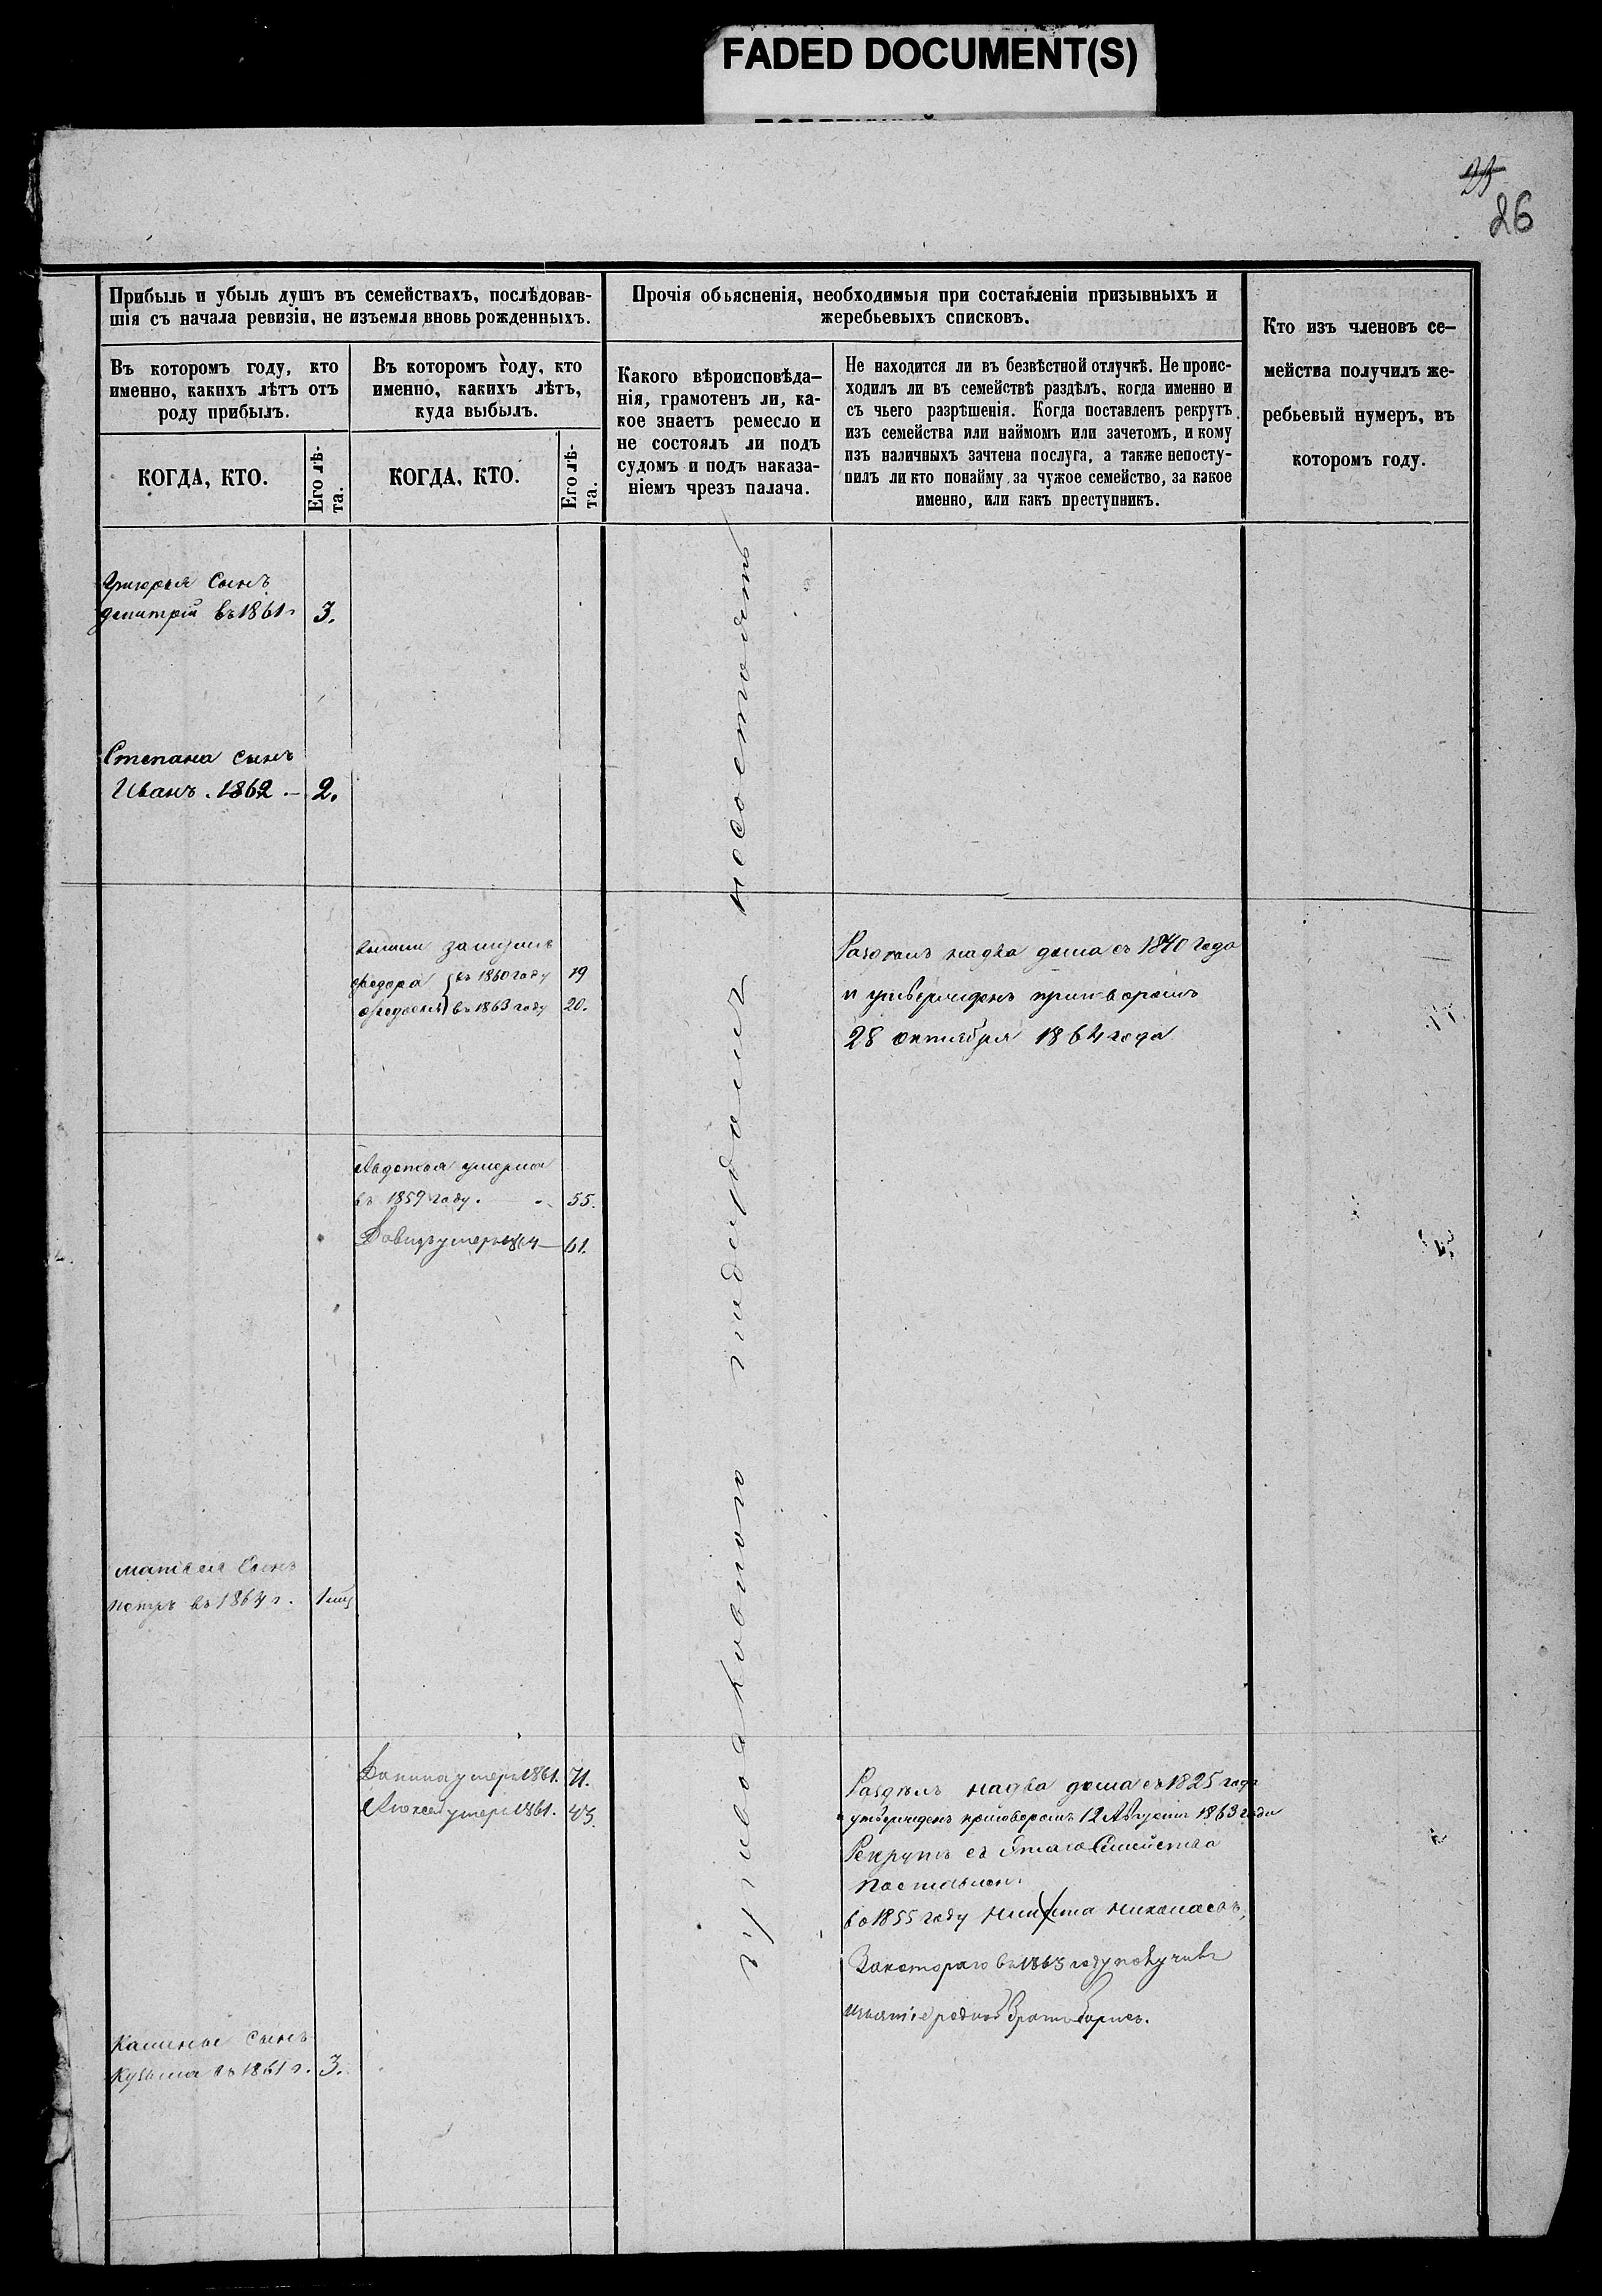 FADED DOCUMENT(S)
26
Прибыль и убыль душъ въ семействахъ, послѣдовав-
шія съ начала ревизіи, не изъемля вновь рожденныхъ.
Въ которомъ году, кто
именно, какихъ лѣтъ отъ
роду прибылъ.
КОГДА, КТО.
Его лѣ-
та.
Въ которомъ году, кто
именно, какихъ лѣтъ,
куда выбылъ.
КОГДА, КТО.
Его лѣ-
та.
Прочія объясненія, необходимыя при составленіи призывныхъ и
жеребьевыхъ списковъ.
Какого вѣроисповѣда-
нія, грамотенъ ли, ка-
кое знаетъ ремесло и
не состоялъ ли подъ
судомъ и подъ наказа-
ніемъ чрезъ палача.
Не находится ли въ безвѣстной отлучкѣ. Не проис-
ходилъ ли въ семействѣ раздѣлъ, когда именно и
съ чьего разрѣшенія. Когда поставленъ рекрутъ
изъ семейства или наймомъ или зачетомъ, и кому
изъ наличныхъ зачтена послуга, а также непосту-
пилъ ли кто понайму за чужое семейство, за какое
именно, или какъ преступникъ.
Кто изъ членовъ се-
мейства получилъ же-
ребьевый нумеръ, въ
которомъ году.
Григорья Сынъ
Дмитрій въ 1861 г 3.
Степана сынъ
Иванъ. 1862 — 2.
замужъ
Федора въ 1860 году 19
въ 1863 году 20.
Раздѣлъ на два дома съ 1840 года
и утвержденъ приговоромъ
28 октября 1864 года
Авдотья умерла
въ 1859 году. 55.
Давидъ умеръ 1864 — 61.
сынъ
петръ въ 1864 г. 1
умеръ 1861. 71.
Алексей умеръ 1861. 43.
Раздѣлъ на два дома съ 1825 года
утвержденъ приговоромъ 12 Августа 1863 года
Рекрутъ съ Этаго Семейства
поставлен.
во 1855 году Никита николаевъ,
Закотораго въ 1863 году получивъ
родной братъ борис.
сынъ
Кузьма въ 1861 г. 3.